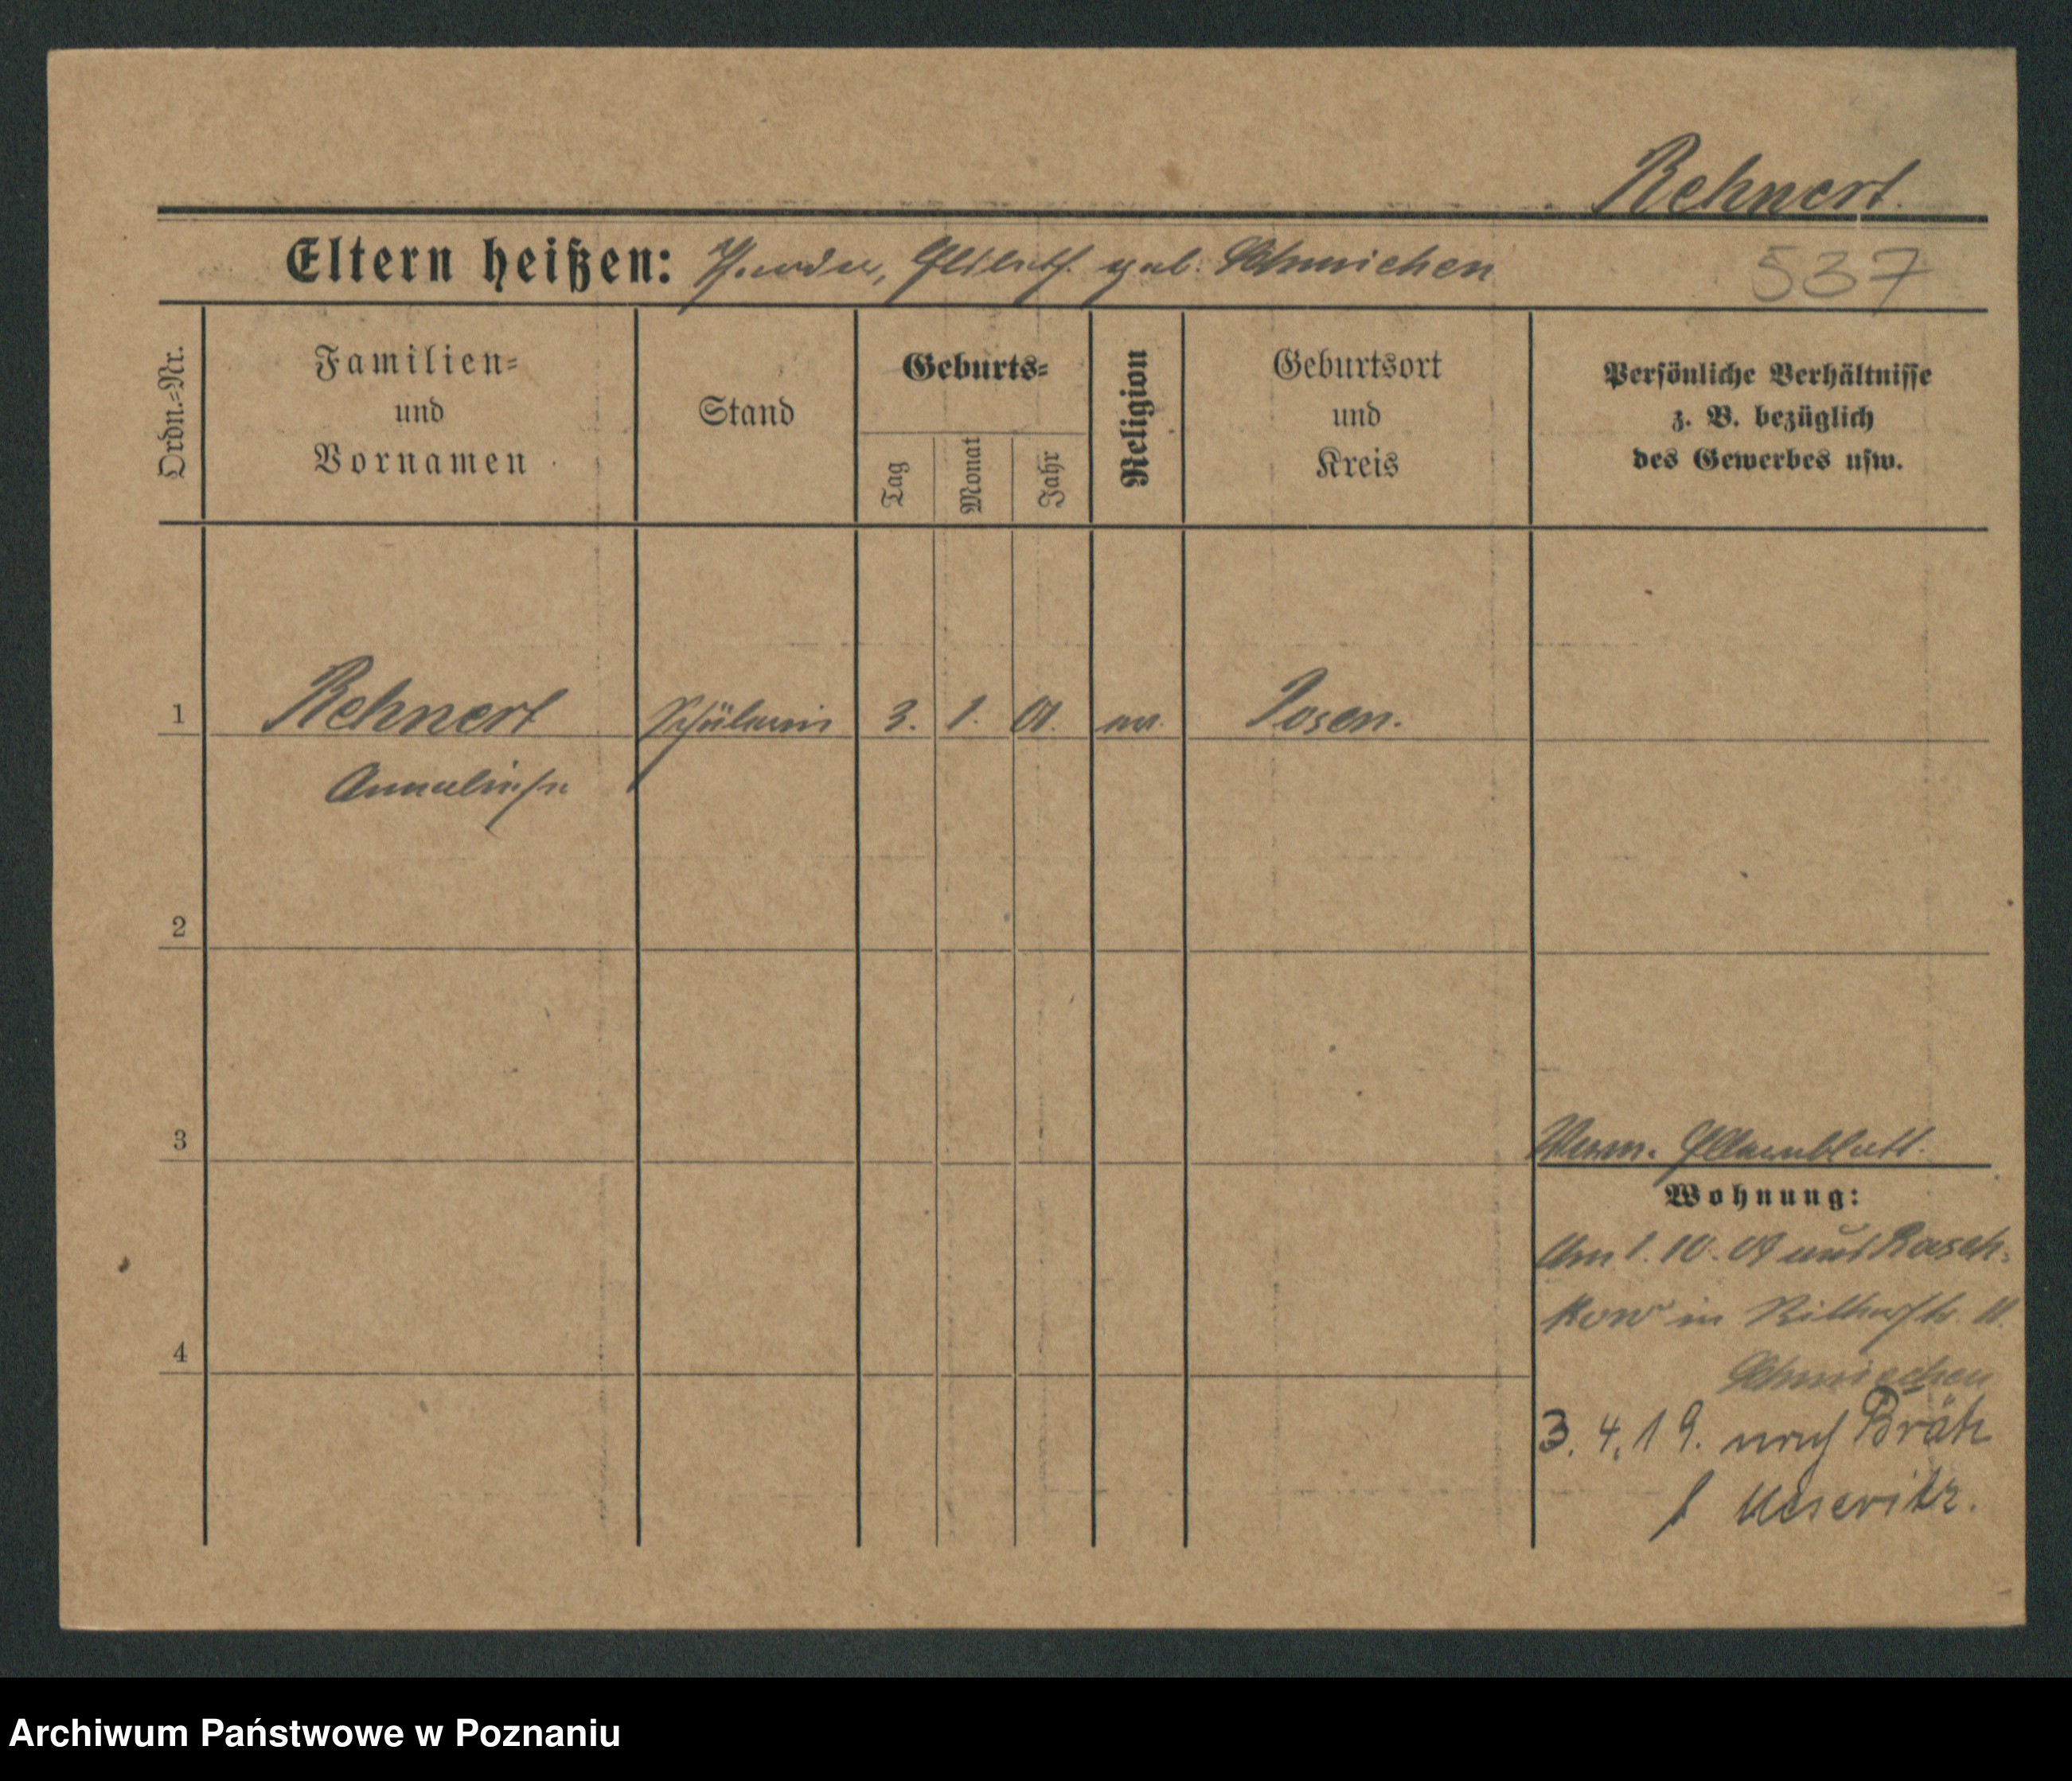 Rehnert.
Eltern heißen: Elisabeth geb. Schmiechen
537
Ordn.-Nr.
Familien-
und
Vornamen
Stand
Geburts-
Tag
Monat
Jahr
Religion
Geburtsort
und
Kreis
Persönliche Verhältnisse
z. B. bezüglich
des Gewerbes usw.
1
Rehnert
Schülerin
3.
1.
01.
ev.
Posen.
Anneliese
2
3
4
Elternblatt.
Wohnung:
Am 1.10. aus Rasch-
kow in Ritterstr. 11.
Schmiechen
3.4.19. nach Brätz
Meseritz.
Archiwum Państwowe w Poznaniu